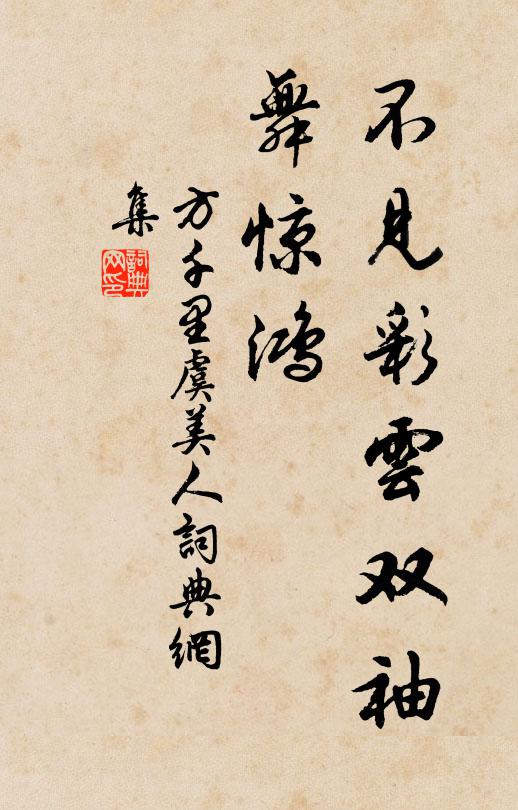 不見彩雲双袖
舞惊鸿
方千里虞美人詞典網
集
詞典
网印